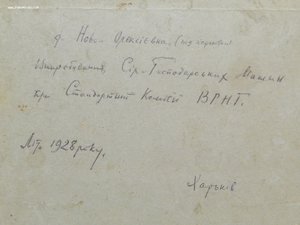 д. Нова Олексіевка,
випробовання, Сіл-Господарських Машин
при Стандартній Комісії ВРНГ.
Літо 1928 року.
Харьків